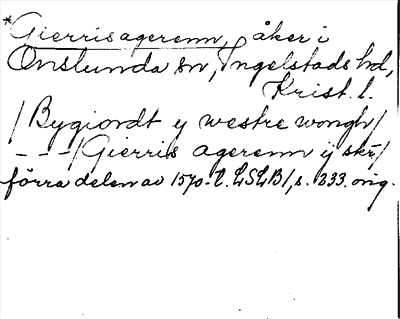 *Gierris agerenn, åker i
Onslunda sn, Ingelstads hd,
Krist. l.
/Bygiordt ij westre wongh/
---/Gierris agerenn ij skr/
förra delen av 1570-t. LSLB1, s. 333. orig.